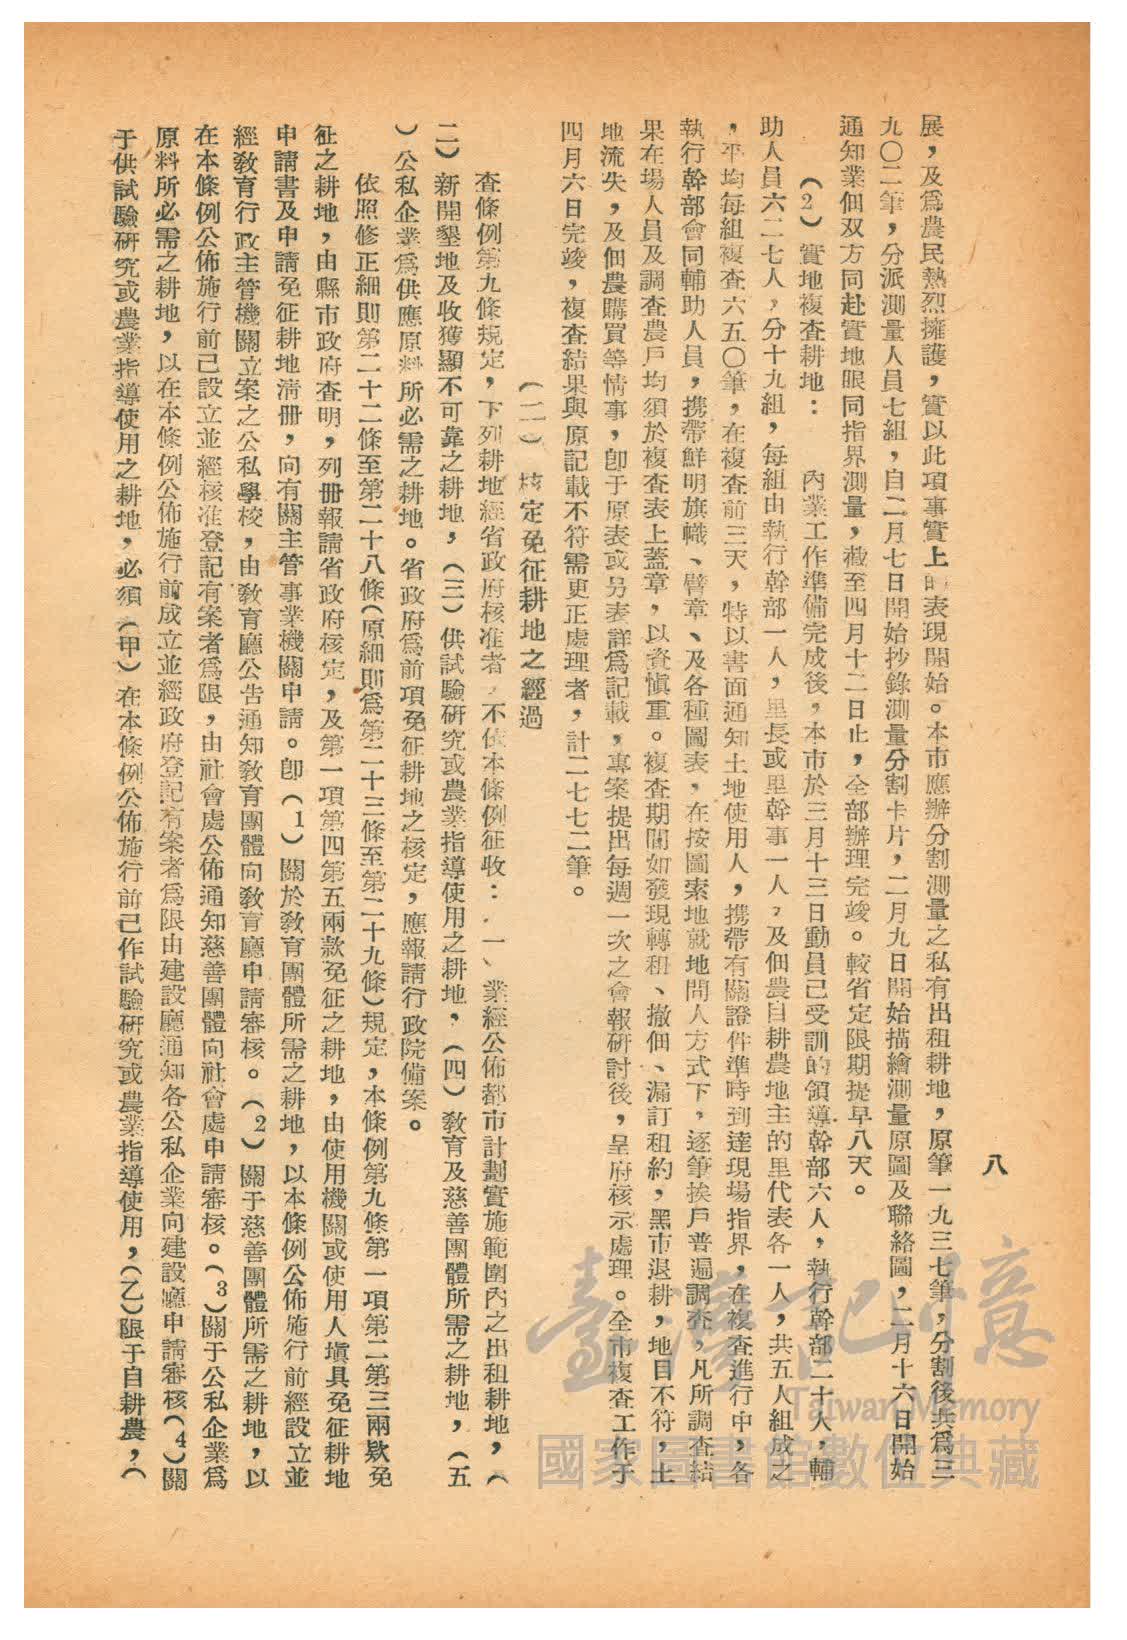 八
展，及爲農民熱烈擁護，實以此項事實上的表現開始。本市應辦分割測量之私有出租耕地，原筆一九三七筆，分割後共爲三
九〇二筆，分派測量人員七組，自二月七日開始抄錄測量分割卡片，二月九日開始描繪測量原圖及聯絡圖，二月十六日開始
通知業佃双方同赴實地眼同指界測量，截至四月十二日止，全部辦理完竣。較省定限期提早八天。
（2）實地複查耕地：　內業工作準備完成後，本市於三月十三日動員已受訓的領導幹部六人，執行幹部二十人，輔
助人員六二七人，分十九組，每組由執行幹部一人，里長或里幹事一人，及佃農自耕農地主的里代表各一人，共五人組成之
，平均每組複查六五〇筆，在複查前三天，特以書面通知土地使用人，携帶有關證件準時到達現場指界，在複查進行中，各
執行幹部會同輔助人員，携帶鮮明旗幟、臂章、及各種圖表，在按圖索地就地問人方式下，逐筆挨戶普遍調查，凡所調查結
果在場人員及調查農戶均須於複查表上蓋章，以資愼重。複查期間如發現轉租、撤佃、漏訂租約，黑市退耕，地目不符，土
地流失，及佃農購買等情事，卽于原表或另表詳爲記載，專案提出每週一次之會報研討後，呈府核示處理。全市複查工作于
四月六日完竣，複查結果與原記載不符需更正處理者，計二七七二筆。
（二）核定免征耕地之經過
查條例第九條規定，下列耕地經省政府核准者，不依本條例征收：一、業經公佈都市計劃實施範圍內之出租耕地，（
二）新開墾地及收獲顯不可靠之耕地，（三）供試驗研究或農業指導使用之耕地，（四）敎育及慈善團體所需之耕地，（五
）公私企業爲供應原料所必需之耕地。省政府爲前項免征耕地之核定，應報請行政院備案。
依照修正細則第二十二條至第二十八條（原細則爲第二十三條至第二十九條）規定，本條例第九條第一項第二第三兩欵免
征之耕地，由縣市政府查明，列冊報請省政府核定，及第一項第四第五兩款免征之耕地，由使用機關或使用人塡具免征耕地
申請書及申請免征耕地淸冊，向有關主管事業機關申請。卽（1）關於敎育團體所需之耕地，以本條例公佈施行前經設立並
經敎育行政主管機關立案之公私學校，由敎育廳公告通知敎育團體向敎育廳申請審核。（2）關于慈善團體所需之耕地，以
在本條例公佈施行前已設立並經核准登記有案者爲限，由社會處公佈通知慈善團體向社會處申請審核。（3）關于公私企業爲
原料所必需之耕地，以在本條例公佈施行前成立並經政府登記有案者爲限由建設廳通知各公私企業向建設廳申請審核（4）關
于供試驗研究或農業指導使用之耕地，必須（甲）在本條例公佈施行前已作試驗研究或農業指導使用，（乙）限于自耕農，（
臺灣記憶
Taiwan Memory
國家圖書館數位典藏